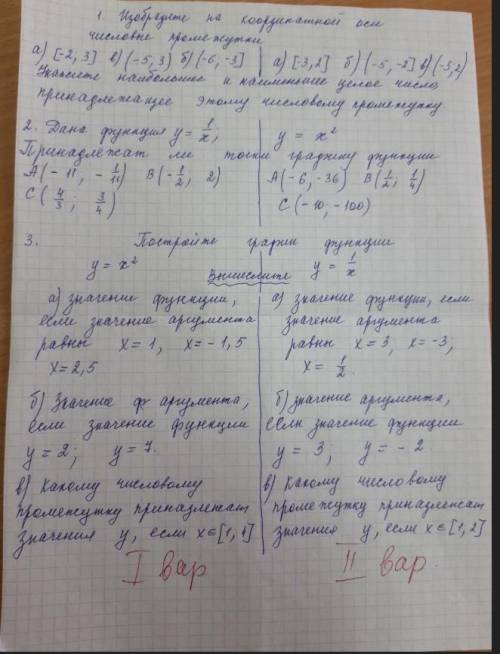 1. Изобразите на координатной оси
числовые промежутки
а) [-2, 3] в) (-5, 3) б) (-6, -3] а) [-3, 2] б) (-5, -2] в) (-3, 2)
Укажите наибольшее и наименьшее целое число,
принадлежащее этому числовому промежутку.
2. Дана функция y = 1/x, y = x²
Принадлежат ли точки графику функции
А(-11, -1/11) В(-1/2, 2) А(-6, -36) В(1/2; 1/4)
С(4/3; 3/4) С(-10; -100)
3. Постройте график функции
y = x² y = 1/x
Вычислите
а) значение функции,
если значение аргумента
равны x = 1, x = -1,5
x = 2,5
б) Значение ф аргумента,
если значение функции
y = 2; y = 7.
в) Какому числовому
промежутку принадлежат
значения y, если x ∈ [1, 4]
I вар
а) значение функции, если
значение аргумента
равны x = 3, x = -3;
x = 1/2.
б) значение аргумента,
если значение функции
y = 3, y = -2.
в) Какому числовому
промежутку принадлежат
значения y, если x ∈ [1, 2]
II вар.